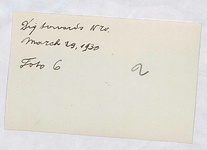 Dig towards N.W.
March 29, 1930
Foto 6
2